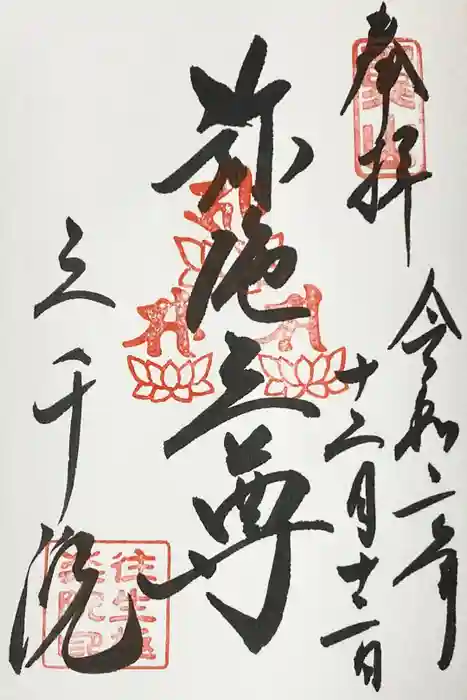 奉拝
令和二年
十二月十二日
弥陀三尊
三千院
往生極
楽院印